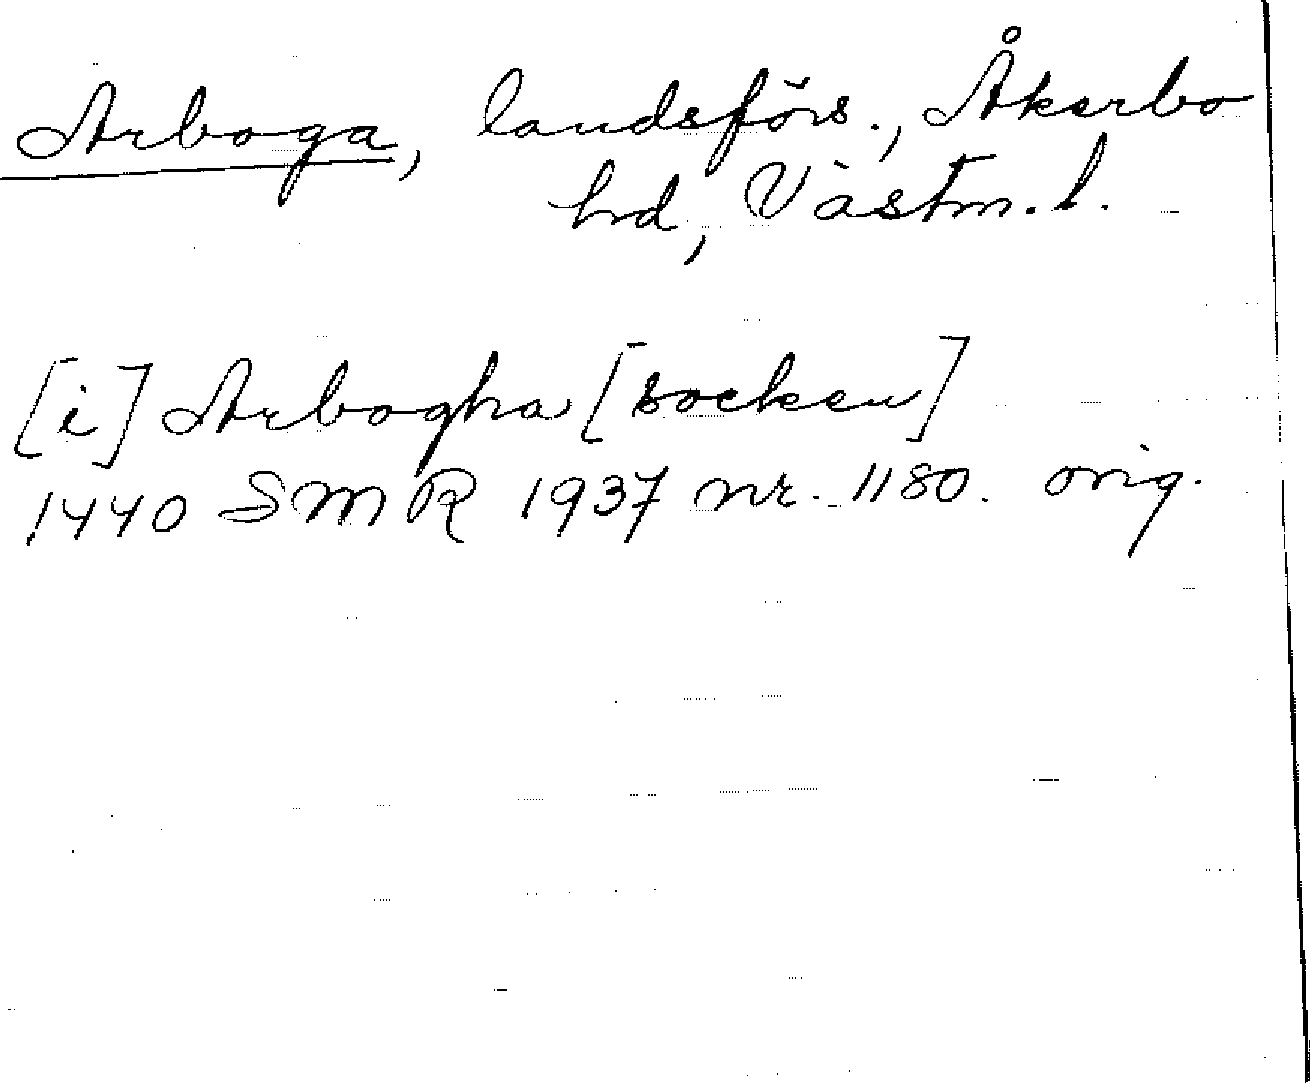 Arboga, landsförs., Åkerbo
hd, Västm. l.
[i] Arbogha [socken]
1440 SMR 1937 nr. 1180. orig.